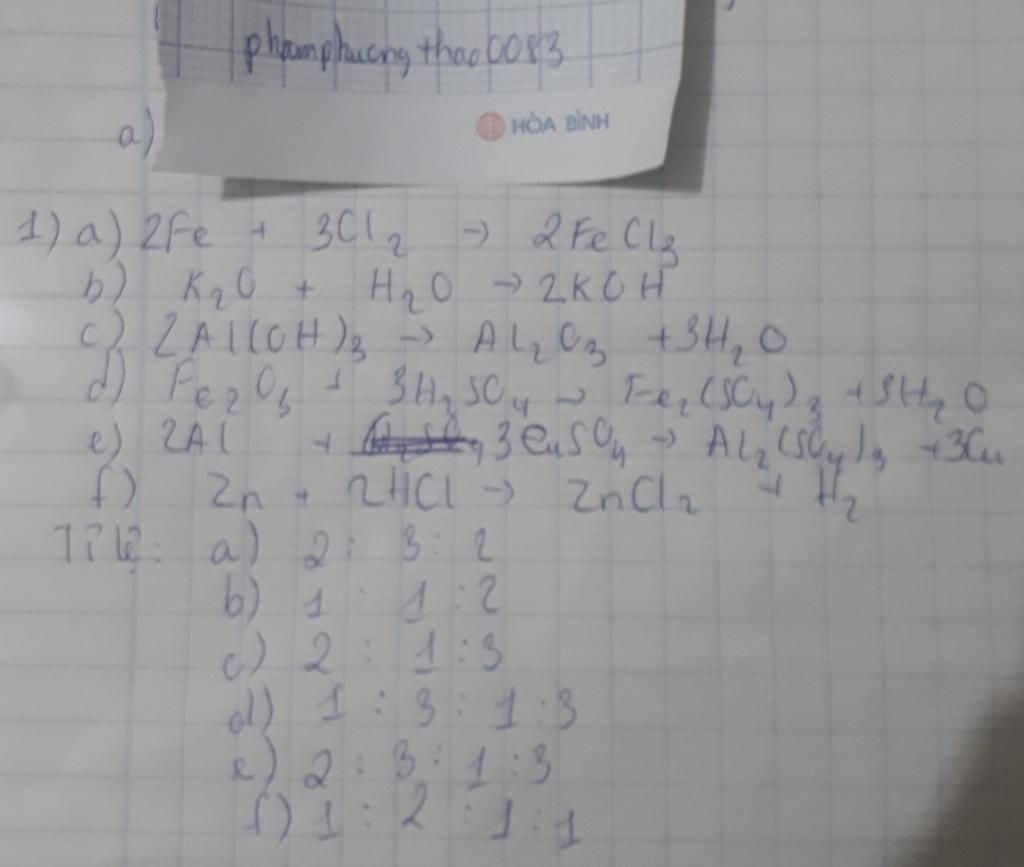 phamphuongthao0083
HÒA BÌNH
a)
1) a) 2Fe + 3Cl₂ → 2FeCl₃
b) K₂O + H₂O → 2KOH
c) 2Al(OH)₃ → Al₂O₃ + 3H₂O
d) Fe₂O₃ + 3H₂SO₄ → Fe₂(SO₄)₃ + 3H₂O
e) 2Al + 3CuSO₄ → Al₂(SO₄)₃ + 3Cu
f) Zn + 2HCl → ZnCl₂ + H₂
Tỉ lệ: a) 2 : 3 : 2
b) 1 : 1 : 2
c) 2 : 1 : 3
d) 1 : 3 : 1 : 3
e) 2 : 3 : 1 : 3
f) 1 : 2 : 1 : 1